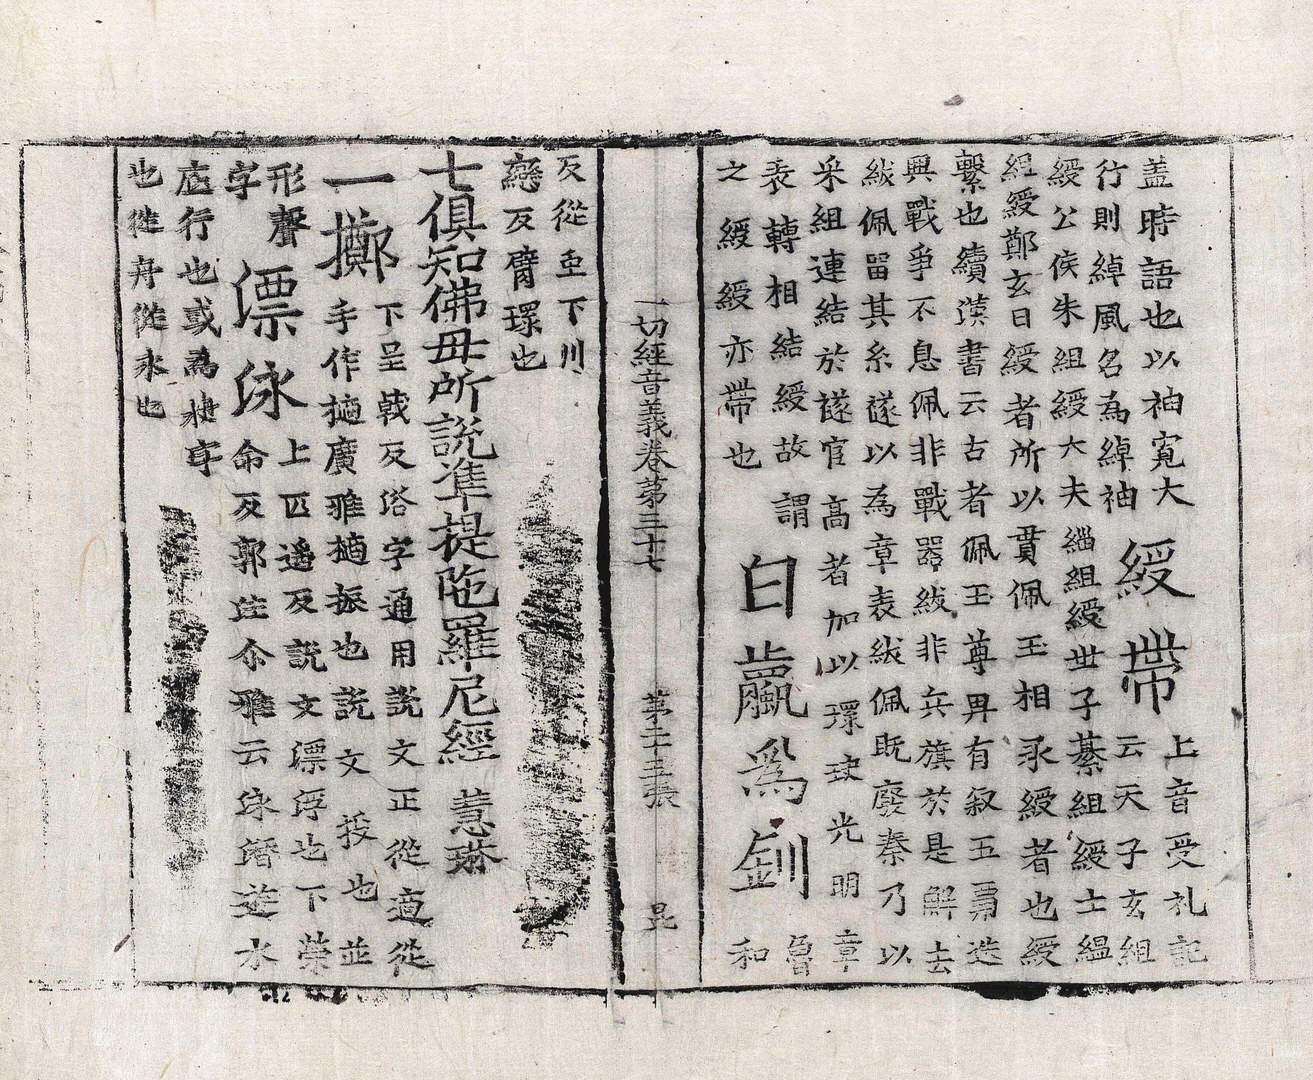 盖時語也以袖寬大
行則綽風名為綽袖
綬帶
上音受礼記
云天子玄組
綬公侯朱組綬大夫緇組綬世子綦組綬士縕
組綬鄭玄曰綬者所以貫佩玉相承綬者也綬
繫也續漢書云古者佩玉尊卑有叙五霸迭
興戰爭不息佩非戰器紱非兵旗於是解去
紱佩留其系襚以為章表紱佩既廢秦乃以
采組連結於襚官高者加以環玦光明章
表轉相結綬故謂
之綬綬亦帶也
白鸁為釧
魯
和
一切經音義卷第三十七 第二十三張 昆
反從虫下川
戀反臂環也
七俱知佛母所說準提陁羅尼經 慧琳
一擲
下呈戟反俗字通用說文正從適從
手作擿廣雅擿振也說文投也並
形聲
字
漂泳
上匹遙反說文漂浮也下榮
命反郭注尒雅云泳潛遊水
底行也或為
也從舟從永也